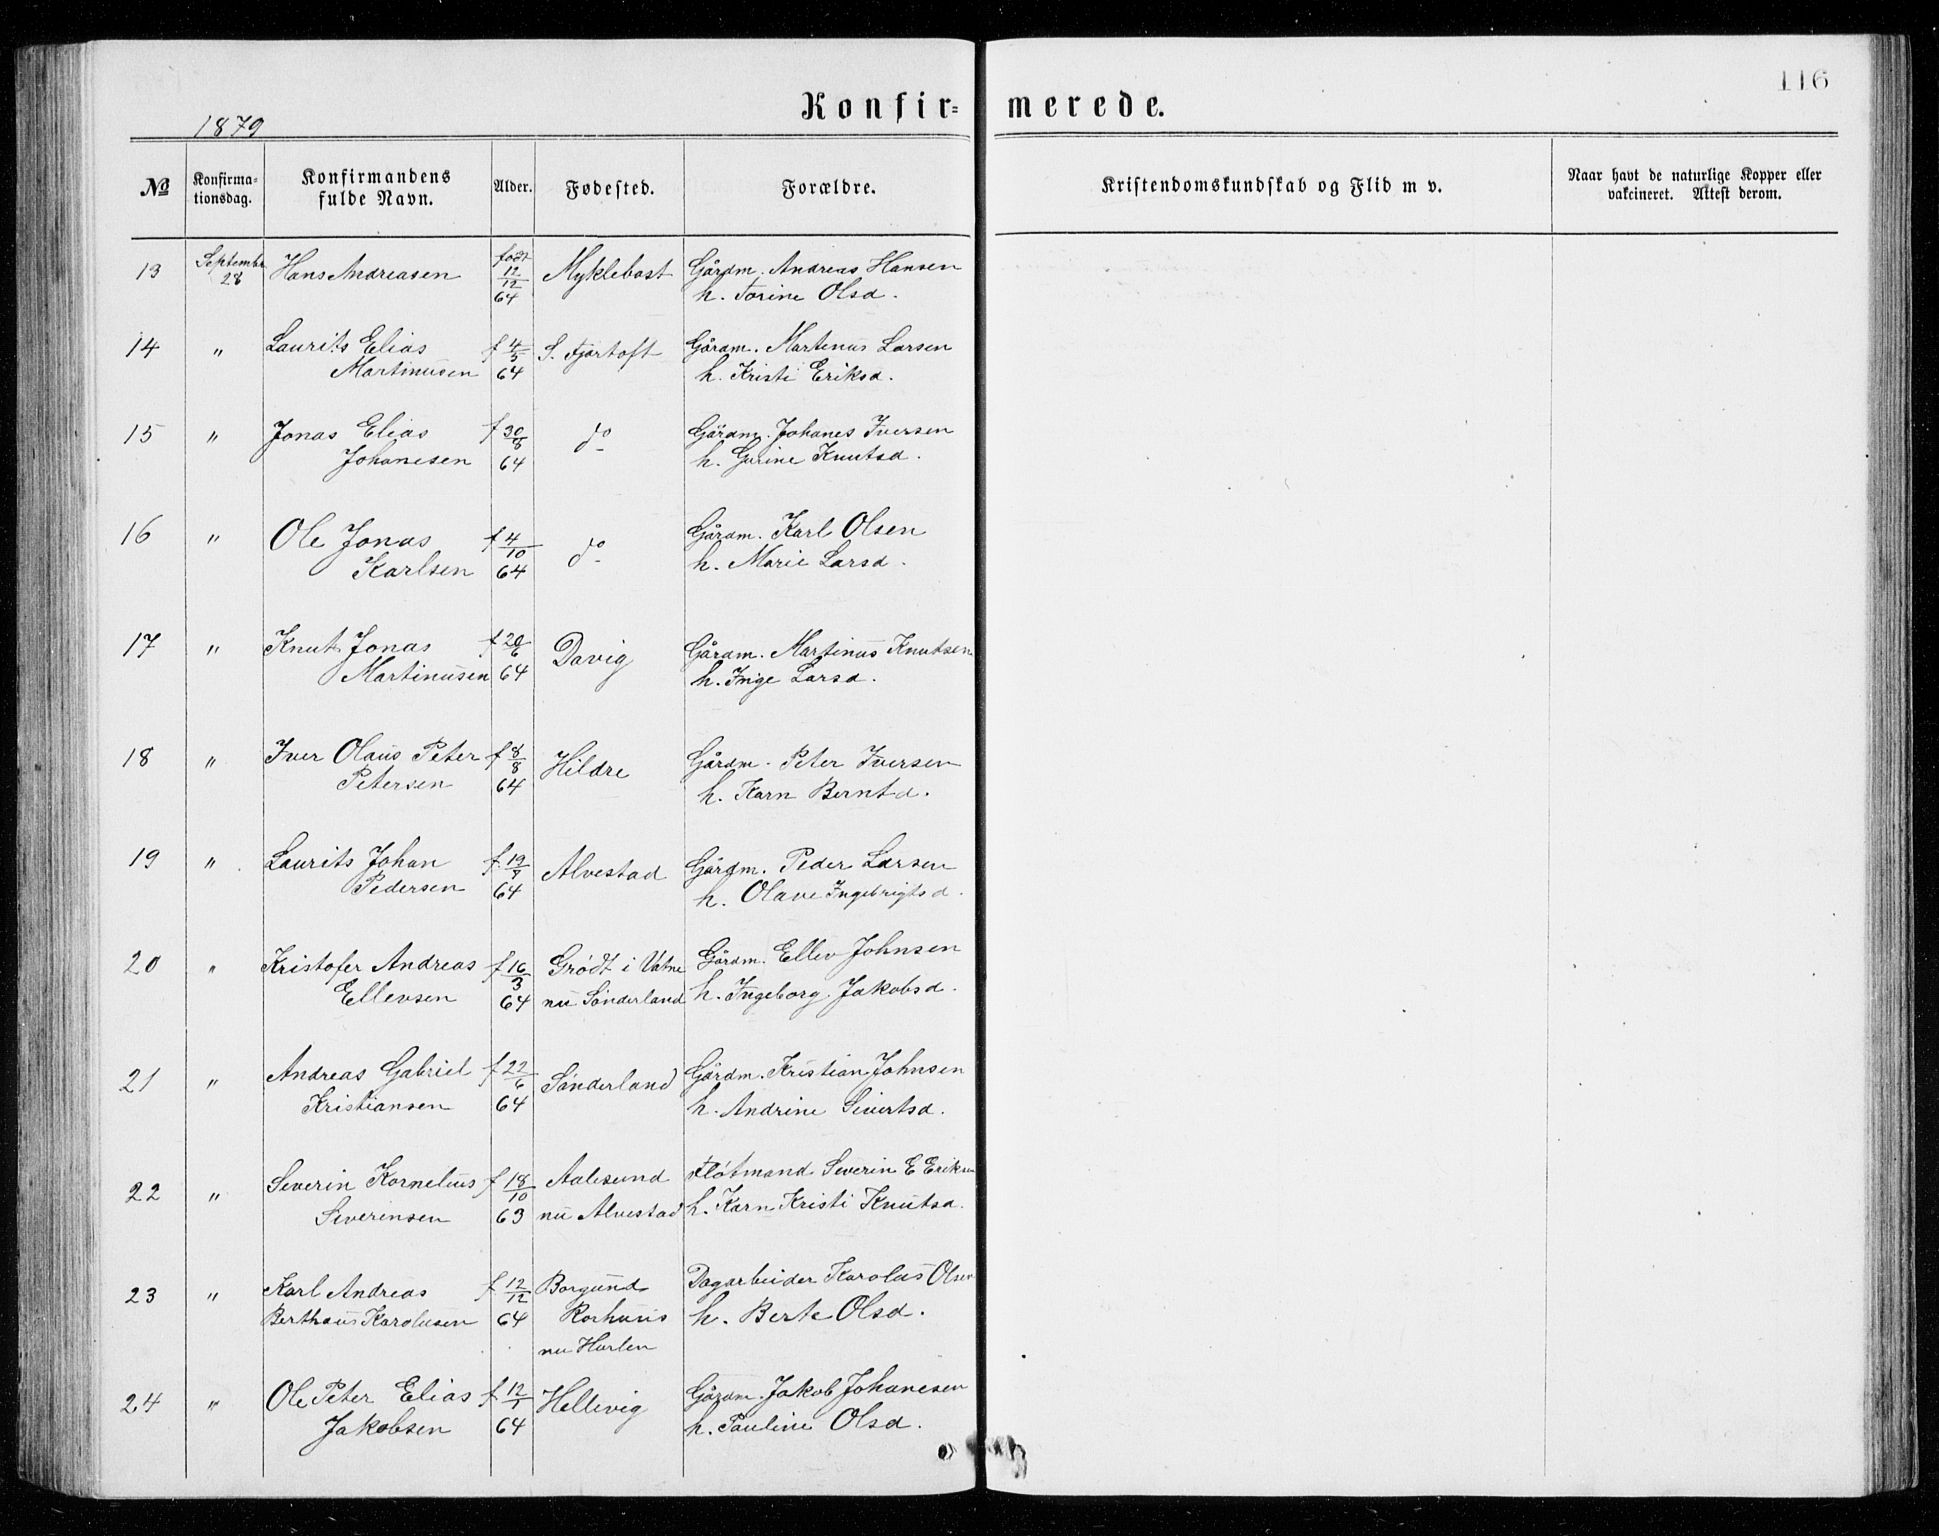 116
Konfirmerede.
1879
№ Konfirmationsdag. Konfirmandens fulde Navn. Alder. Fødested. Forældre. Kristendomskundskab og Flid m v. Naar havt de naturlige Kopper eller vakcineret. Attest derom.
13 Septembr 28 Hans Andreasen født 12/12 64 Myklebost Gårdm. Andreas Hansen
h. Torine Olsd.
14 " Laurits Elias f 4/5 S. Fjørtoft Gårdm. Martinus Larsen
Martinusen 64 h. Kristi Eriksd.
15 " Jonas Elias f 30/8 do Gårdm. Johanes Iversen
Johanesen 64 h. Gurine Knutsd.
16 " Ole Jonas f 4/10 do Gårdm. Karl Olsen
Karlsen 64 h. Marie Larsd.
17 " Knut Jonas f 20/6 Davig Gårdm. Martinus Knutsen
Martinusen 64 h. Inge Larsd.
18 " Iver Olaus Peter f 8/8 Hildre Gårdm. Peter Iversen
Petersen 64 h. Karn Berntd.
19 " Laurits Johan f. 19/7 Alvestad Gårdm. Peder Larsen
Pedersen 64 h. Olave Ingebrigtsd.
20 " Kristofer Andreas f 16/3 Grødt i Vatne Gårdm. Ellev Johnsen
Ellevsen 64 nu Sønderland h. Ingeborg Jakobsd.
21 " Andreas Gabriel f 22/6 Sønderland Gårdm. Kristian Johnsen
Kristiansen 64 h. Andrine Sivertsd.
22 " Severin Kornelius f 18/10 Aalesund Fløtmand Severin E Eriksen
Severinsen 63 nu Alvestad h. Karn Kristi Knutsd.
23 " Karl Andreas f 12/12 Borgund Dagarbeider Karolus Olsen
Berthaus Karolusen 64 Rorhuus h. Berte Olsd.
nu Harlen
24 " Ole Peter Elias f 12/1 Hellevig Gårdm. Jakob Johanesen
Jakobsen 64 h. Pauline Olsd.